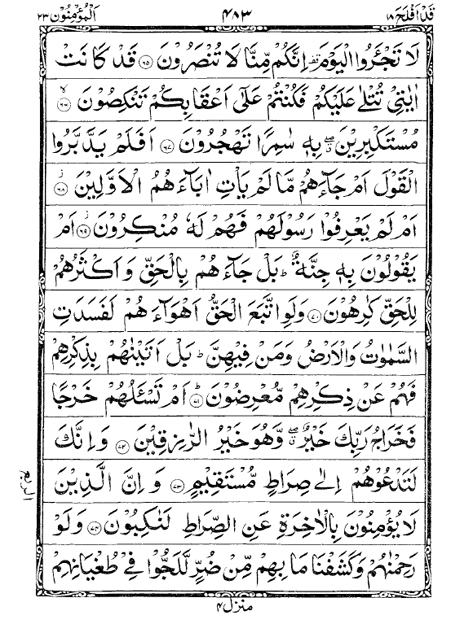 قد افلح ١٨ ٤٨٣ المؤمنون ٢٣
لَا تَجْـَٔرُوا الْيَوْمَ ۫ اِنَّكُمْ مِّنَّا لَا تُنْصَرُوْنَ ﴿٦٥﴾ قَدْ كَانَتْ
اٰيٰتِيْ تُتْلٰى عَلَيْكُمْ فَكُنْتُمْ عَلٰٓى اَعْقَابِكُمْ تَنْكِصُوْنَ ﴿٦٦﴾
مُسْتَكْبِرِيْنَ ۖ بِهٖ سٰمِرًا تَهْجُرُوْنَ ﴿٦٧﴾ اَفَلَمْ يَدَّبَّرُوا
الْقَوْلَ اَمْ جَآءَهُمْ مَّا لَمْ يَاْتِ اٰبَآءَهُمُ الْاَوَّلِيْنَ ﴿٦٨﴾
اَمْ لَمْ يَعْرِفُوْا رَسُوْلَهُمْ فَهُمْ لَهٗ مُنْكِرُوْنَ ﴿٦٩﴾ اَمْ
يَقُوْلُوْنَ بِهٖ جِنَّةٌ ؕ بَلْ جَآءَهُمْ بِالْحَقِّ وَاَكْثَرُهُمْ
لِلْحَقِّ كٰرِهُوْنَ ﴿٧٠﴾ وَلَوِ اتَّبَعَ الْحَقُّ اَهْوَآءَهُمْ لَفَسَدَتِ
السَّمٰوٰتُ وَالْاَرْضُ وَمَنْ فِيْهِنَّ ؕ بَلْ اَتَيْنٰهُمْ بِذِكْرِهِمْ
فَهُمْ عَنْ ذِكْرِهِمْ مُّعْرِضُوْنَ ﴿٧١﴾ اَمْ تَسْـَٔلُهُمْ خَرْجًا
فَخَرَاجُ رَبِّكَ خَيْرٌ ۖ وَّهُوَ خَيْرُ الرّٰزِقِيْنَ ﴿٧٢﴾ وَاِنَّكَ
لَتَدْعُوْهُمْ اِلٰى صِرَاطٍ مُّسْتَقِيْمٍ ﴿٧٣﴾ وَاِنَّ الَّذِيْنَ
لَا يُؤْمِنُوْنَ بِالْاٰخِرَةِ عَنِ الصِّرَاطِ لَنٰكِبُوْنَ ﴿٧٤﴾ وَلَوْ
رَحِمْنٰهُمْ وَكَشَفْنَا مَا بِهِمْ مِّنْ ضُرٍّ لَّلَجُّوْا فِيْ طُغْيَانِهِمْ
الربع
منزل ٤